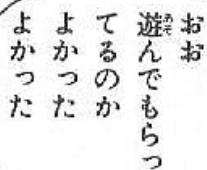 おお
遊んでもらっ
てるのか
よかった
よかった